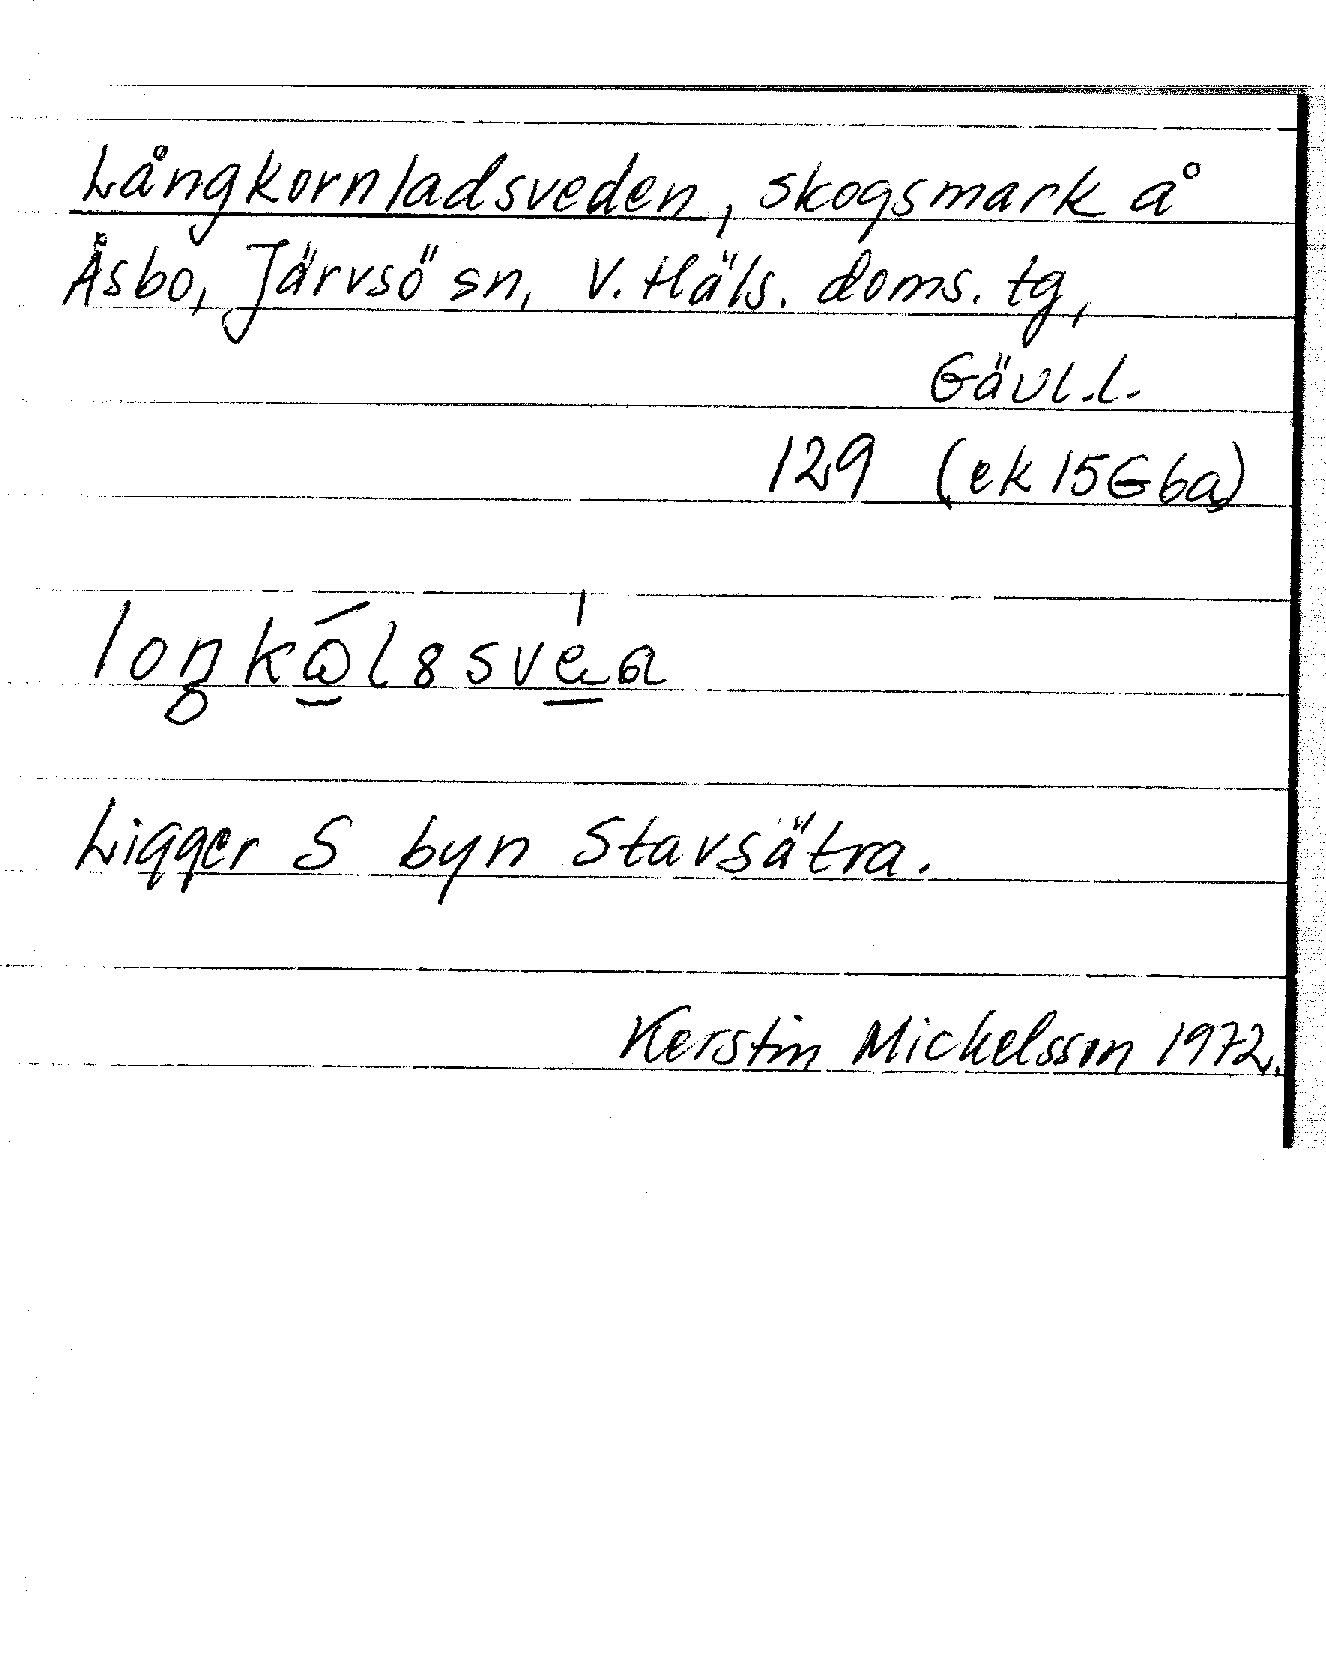 Långkornladsveden, skogsmark å
Åsbo, Järvsö sn, V. Häls. doms. tg,
Gävl.l.
129 (ek 15G6a)
Ligger S byn Stavsätra.
Kerstin Mickelsson 1972.